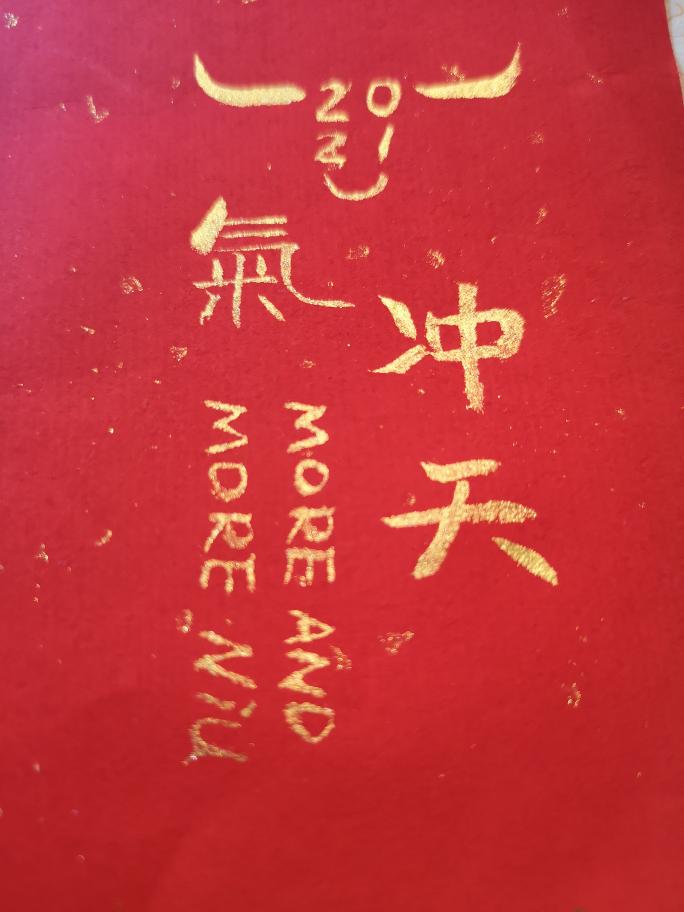 20
21
氣
冲天
MORE AND
MORE Niu